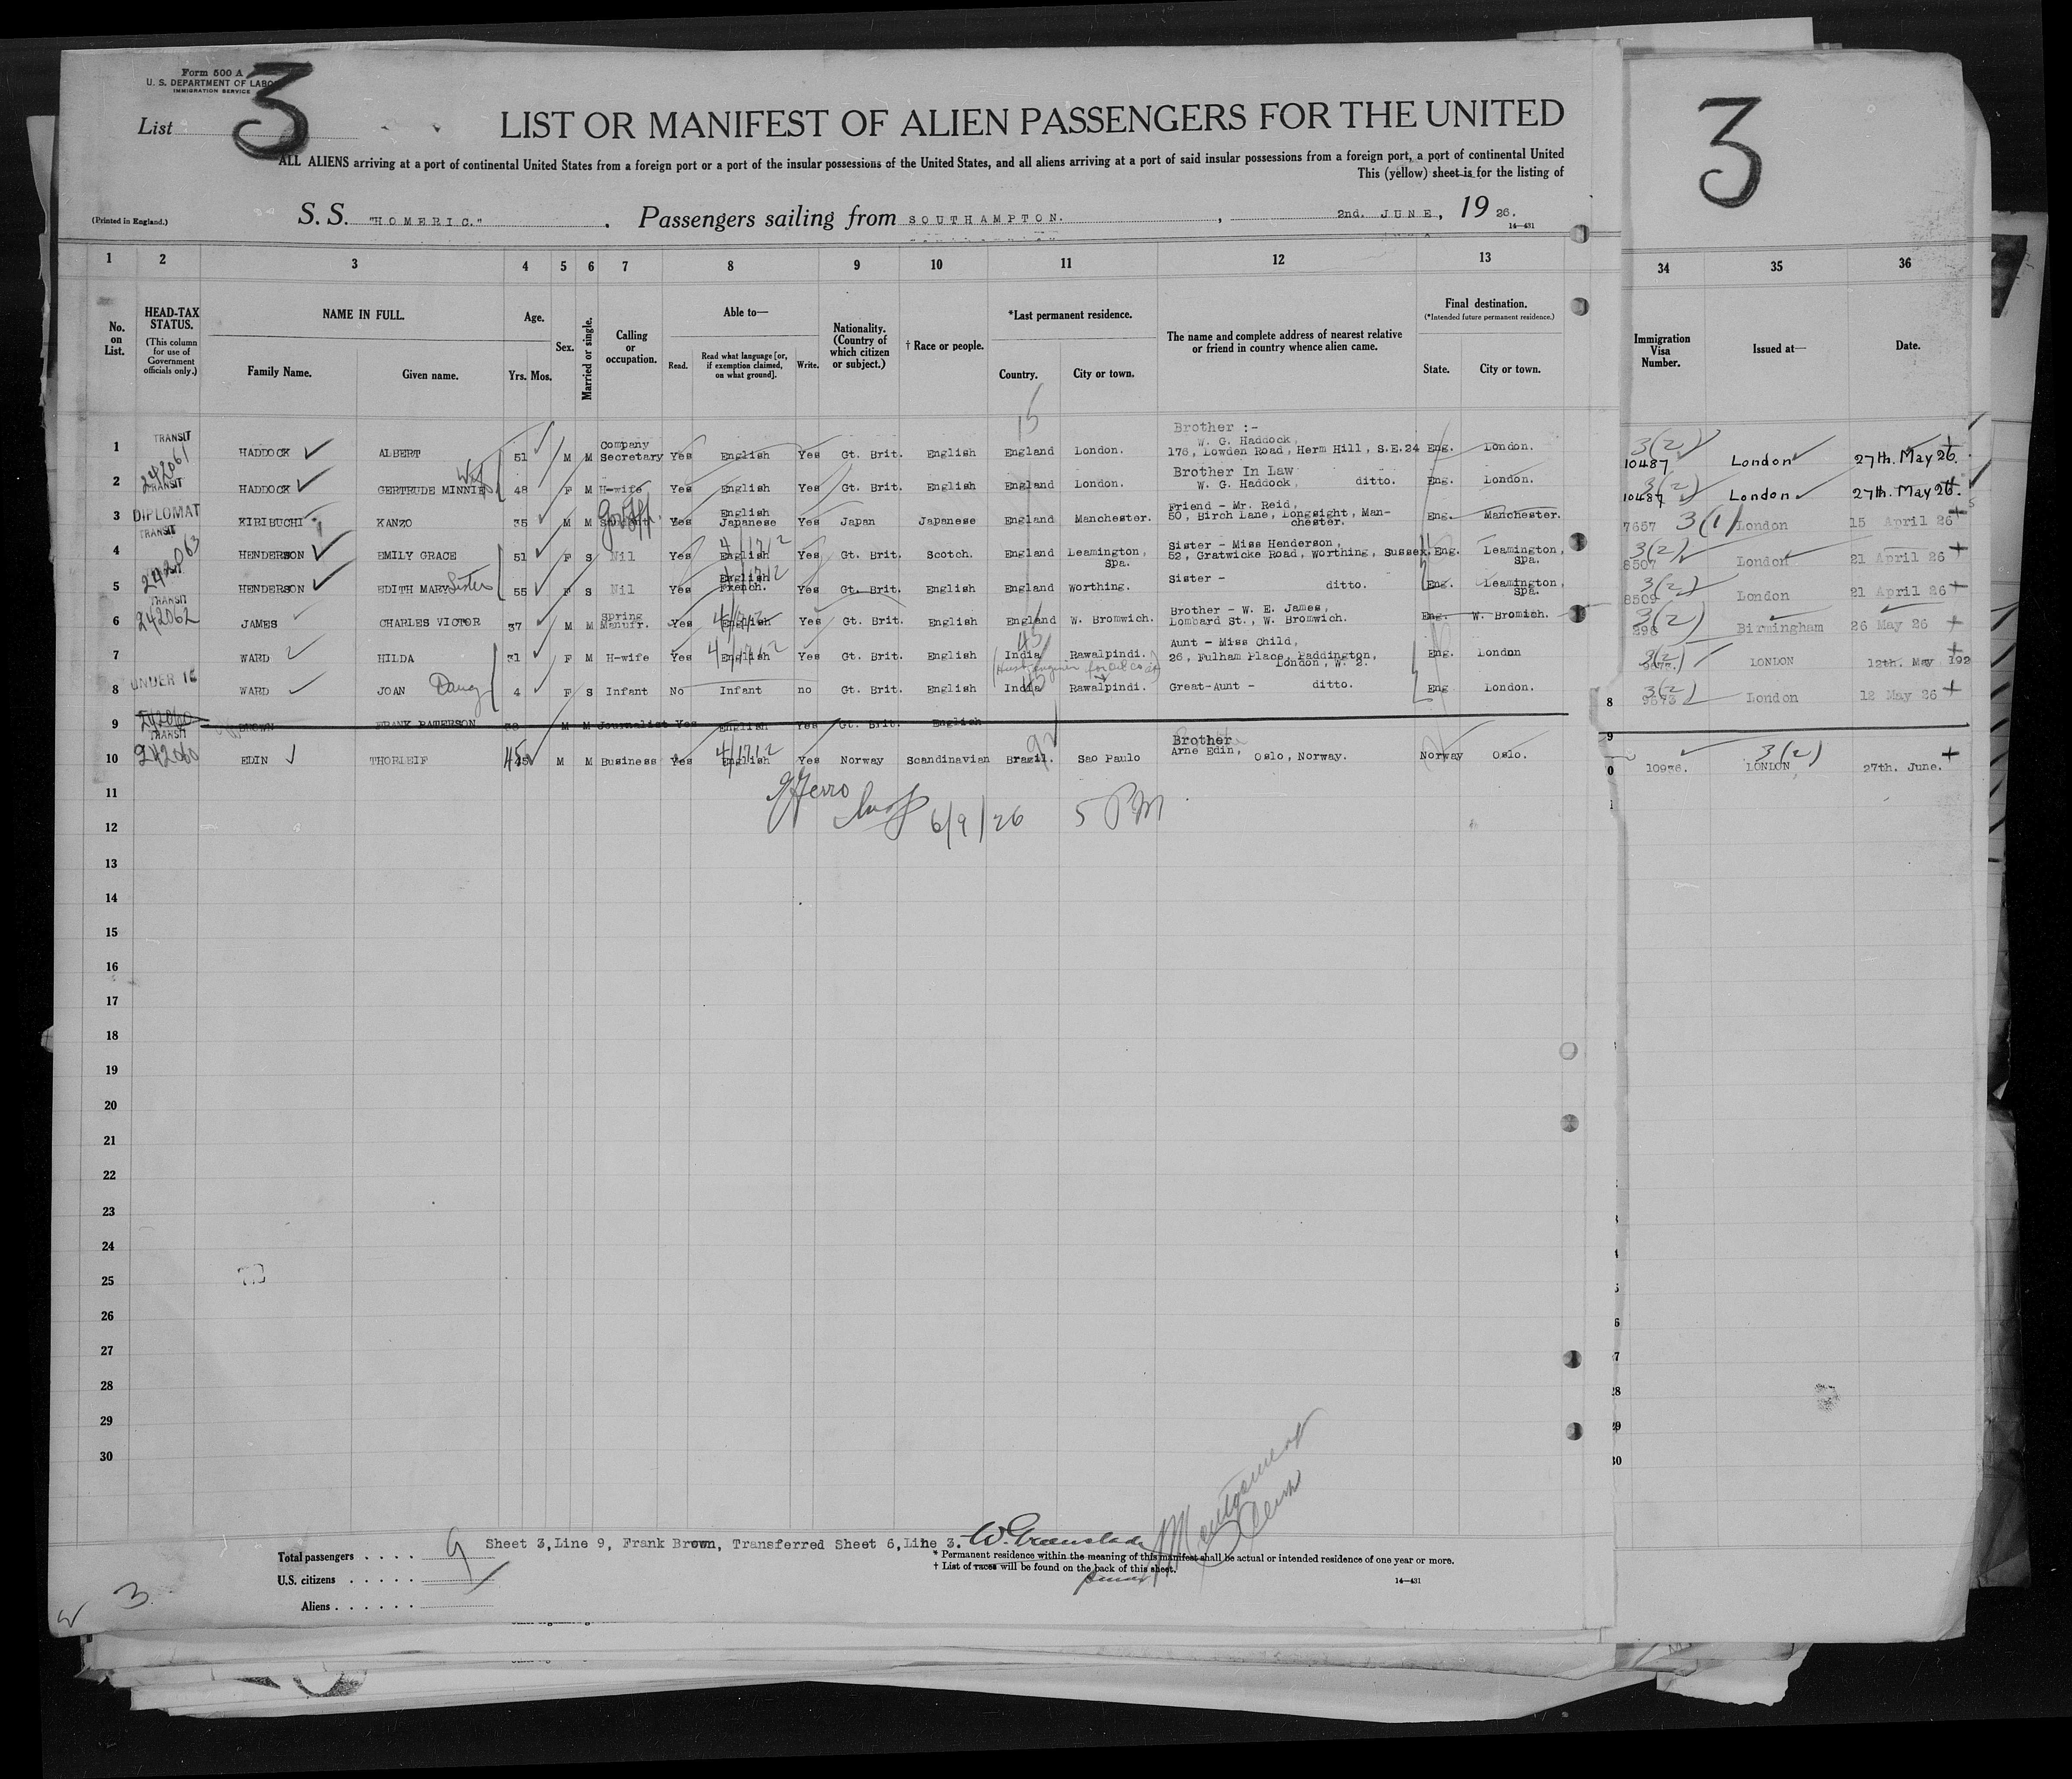 Form 500 A
U. S. DEPARTMENT OF LABOR
IMMIGRATION SERVICE
List
3
LIST OR MANIFEST OF ALIEN PASSENGERS FOR THE UNITED
ALL ALIENS arriving at a port of continental United States from a foreign port or a port of the insular possessions of the United States, and all aliens arriving at a port of said insular possessions from a foreign port, a port of continental United
This (yellow) sheet is for the listing of
(Printed in England.)
S. S. "HOMERIC." . Passengers sailing from SOUTHAMPTON. , 2nd. JUNE, 19 26.
14—431
3
1 2 3 4 5 6 7 8 9 10 11 12 13 34 35 36
No. on List.
HEAD-TAX STATUS. (This column for use of Government officials only.)
NAME IN FULL.
Family Name. Given name.
Age.
Yrs. Mos.
Sex.
Married or single.
Calling or occupation.
Able to—
Read. Read what language [or, if exemption claimed, on what ground]. Write.
Nationality. (Country of which citizen or subject.)
† Race or people.
*Last permanent residence.
Country. City or town.
The name and complete address of nearest relative or friend in country whence alien came.
Final destination.
(*Intended future permanent residence.)
State. City or town.
Immigration Visa Number.
Issued at—
Date.
15
1 TRANSIT 242061 HADDOCK ALBERT 51 M M Company Secretary Yes English Yes Gt. Brit. English England London. Brother :- W. G. Haddock, 176, Lowden Road, Herm Hill, S.E.24 Eng. London. 3(2) 10487 London 27th. May 26.
2 TRANSIT HADDOCK GERTRUDE MINNIE Wife 48 F M H-wife Yes English Yes Gt. Brit. English England London. Brother In Law W. G. Haddock, ditto. Eng. London. 3(2) 10487 London 27th. May 26.
3 DIPLOMAT KIRIBUCHI KANZO 35 M M Gov Off. Yes English Japanese Yes Japan Japanese England Manchester. Friend - Mr. Reid, 50, Birch Lane, Longsight, Manchester. Eng. Manchester. 7657 3(1) London 15 April 26
4 TRANSIT 242063 HENDERSON EMILY GRACE 51 F S Nil Yes 4/1712 English Yes Gt. Brit. Scotch. England Leamington, Spa. Sister - Miss Henderson, 52, Gratwicke Road, Worthing, Sussex. Eng. Leamington, Spa. 3(2) 8507 London 21 April 26
5 HENDERSON EDITH MARY Sister 55 F S Nil Yes 4/1712 English French. Yes Gt. Brit. English England Worthing. Sister - ditto. Eng. Leamington, Spa. 3(2) 8509 London 21 April 26
6 TRANSIT 242062 JAMES CHARLES VICTOR 37 M M Spring Manufr. Yes English Yes Gt. Brit. English England W. Bromwich. Brother - W. E. James, Lombard St., W. Bromwich. Eng. W. Bromich. 3(2) 296 Birmingham 26 May 26
7 WARD HILDA 31 F M H-wife Yes 4/1712 English Yes Gt. Brit. English India Rawalpindi. Aunt - Miss Child, 26, Fulham Place, Paddington, London, W. 2. Eng. London 3(2) LONDON 12th. May 192
8 UNDER 16 WARD JOAN Daug 4 F S Infant No Infant no Gt. Brit. English India Rawalpindi. Great-Aunt - ditto. Eng London. 8 3(2) 9873 London 12 May 26
9 242060 BROWN FRANK PATERSON M M Journalist Yes English Yes Gt. Brit. English 9
10 TRANSIT 242060 EDIN THORLEIF 45 M M Business Yes 4/1712 English Yes Norway Scandinavian Brazil. Sao Paulo Brother Arne Edin, Oslo, Norway. Norway Oslo. 0 10986. 3(2) LONDON 27th. June.
11
6/9/26 5 PM
12
13
14
15
16
17
18
19
20
21
22
23
24
25
26
27
28
29
30
Sheet 3,Line 9, Frank Brown, Transferred Sheet 6,Line 3.
Total passengers . . . . 9
U.S. citizens . . . . .
Aliens . . . . . .
* Permanent residence within the meaning of this manifest shall be actual or intended residence of one year or more.
† List of races will be found on the back of this sheet.
14—431
3